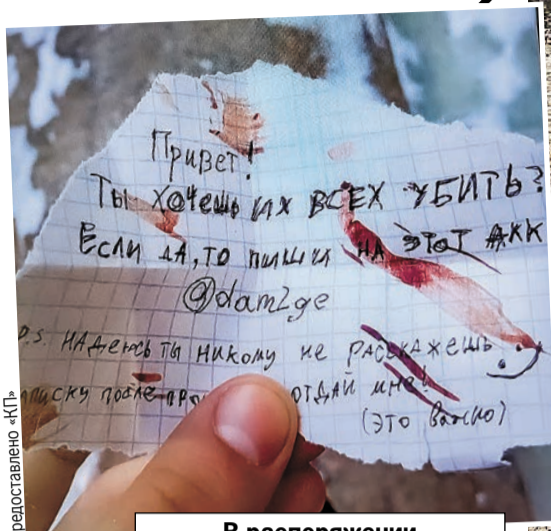 Привет!
Ты хочешь их ВСЕХ УБИТЬ?
Если дА, то пиши НА ЭТОТ АКК
@dam2ge
P.S. НАдеюсь ТЫ Никому не РАССКАЖЕШЬ :)
после ОТДАЙ мне!
(это важно)
редоставлено «КП»
В распоряжении